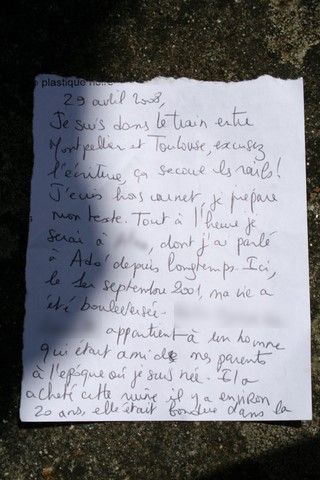 plastique noire
29 avril 2008,
Je suis dans le train entre
Montpellier et Toulouse, excusez
l'écriture, ça secoue les rails!
J'écris hors carnet, je prépare
mon texte. Tout à l'heure je
serai à , dont j'ai parlé
à Ado' depuis longtemps. Ici,
le 1er septembre 2001, ma vie a
été bouleversée.
appartient à un homme
qui était ami de mes parents
à l'époque où je suis née. Il a
acheté cette ruine il y a environ
20 ans, elle était fondue dans la